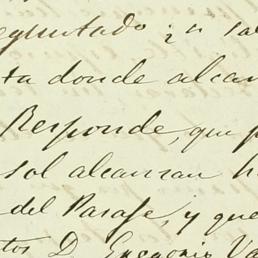 eguntado
ta donde alcan
Responde, que p
sol alcansan h
del Parage, y que
tos D. Gregorio Va